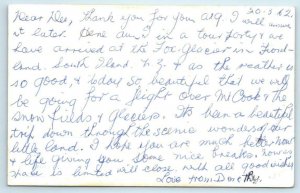 20-3-82.
Dear Dee, Thank you for your a19. I will answer
it later. Gene and I in a tour party & we
have arrived at the Fox Glacier in Fiord-
land. South Island. N.Z & as the weather is
so good, & today so beautiful that we will
be going for a flight over Mt Cook & the
snow fields & Glaciers. It's been a beautiful
trip down through the scenic wonders of our
little land. I hope you are much better now
& life giving you some nice breaks. however
space is limited will close with all good wishes
Love from Dorothy.